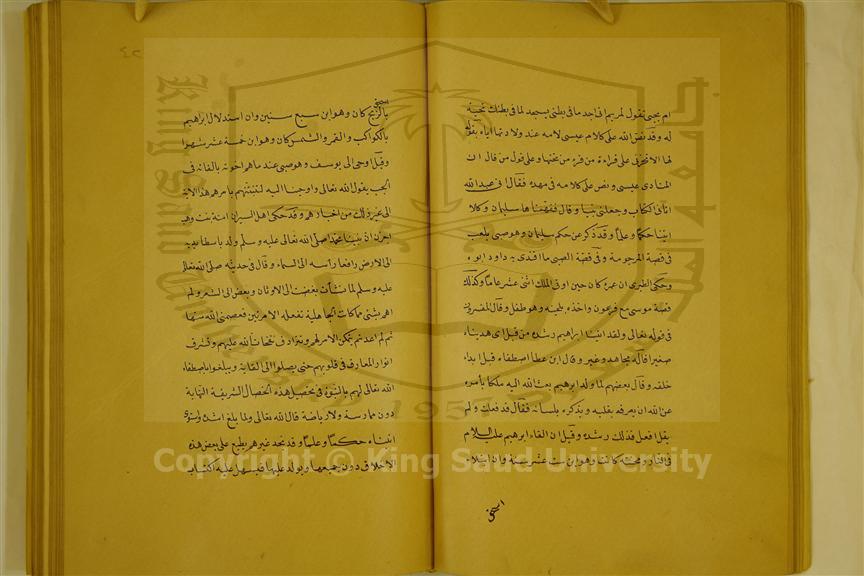 ام يحيى تقول لمريم اني اجد ما في بطني يسجد لما في بطنك تحية
له وقد نص الله على كلام عيسى لامه عند ولادتها اياه بقوله
لها الا تحزني على قراءة من قرء من تحتها وعلى قول من قال ان
المنادى عيسى ونص على كلامه في مهده فقال اني عبد الله
اتاني الكتاب وجعلني نبيا وقال ففهمناها سليمان وكلا
اتينا حكما وعلما وقد ذكر عن حكم سليمان وهو صبي يلعب
في قصة المرجومة وفي قصة الصبي ما اقتدى به داود ابوه
وحكى الطبري ان عمره كان حين اوتي الملك اثنى عشر عاما وكذلك
قصة موسى مع فرعون واخذه بلحيته وهو طفل وقال المفسرون
في قوله تعالى ولقد اتينا ابراهيم رشده من قبل اي هديناه
صغيرا قاله مجاهد وغيره وقال ابن عطا اصطفاه قبل ابداء
خلقه وقال بعضهم لما ولد ابرهيم بعث الله اليه ملكا يأمره
عن الله ان يعرفه بقلبه ويذكره بلسانه فقال قد فعلت ولم
يقل افعل فذلك رشده وقيل ان القاء ابرهيم عليه السلام
في النار ومحنته كانت وهو ابن ست عشر سنة وان ابتلاء
اسحق
اسحق
بالذبح كان وهو ابن سبع سنين وان استدلال ابراهيم
بالكواكب والقمر والشمس كان وهو ابن خمسة عشر شهرا
وقيل اوحي الى يوسف وهو صبي عند ما هم اخوته بالقائه في
الجب بقول الله تعالى واوحينا اليه لتنبئنهم بامرهم هذا الاية
الى غير ذلك من اخبارهم وقد حكى اهل السير ان امنة بنت وهب
اخبرت ان نبينا محمدا صلى الله تعالى عليه وسلم ولد باسطا يديه
الى الارض رافعا رأسه الى السماء وقال في حديثه صلى الله تعالى
عليه وسلم لما نشأت بغضت الي الاوثان وبغض الي الشعر ولم
اهم بشئ مما كانت الجاهلية تفعله الا مرتين فعصمني الله منهما
ثم لم اعد ثم يتمكن الامر لهم وتترادف نفحات الله عليهم وتشرق
انوار المعارف في قلوبهم حتى يصلوا الى الغاية ويبلغوا باصطفاء
الله تعالى لهم بالنبوة في تحصيل هذه الخصال الشريفة النهاية
دون ممارسة ولا رياضة قال الله تعالى ولما بلغ اشده واستوى
اتيناه حكما وعلما وقد نجد غيرهم يطبع على بعض هذه
الاخلاق دون جميعها ويولد عليها فيسهل عليه اكتساب
Copyright © King Saud University
1957